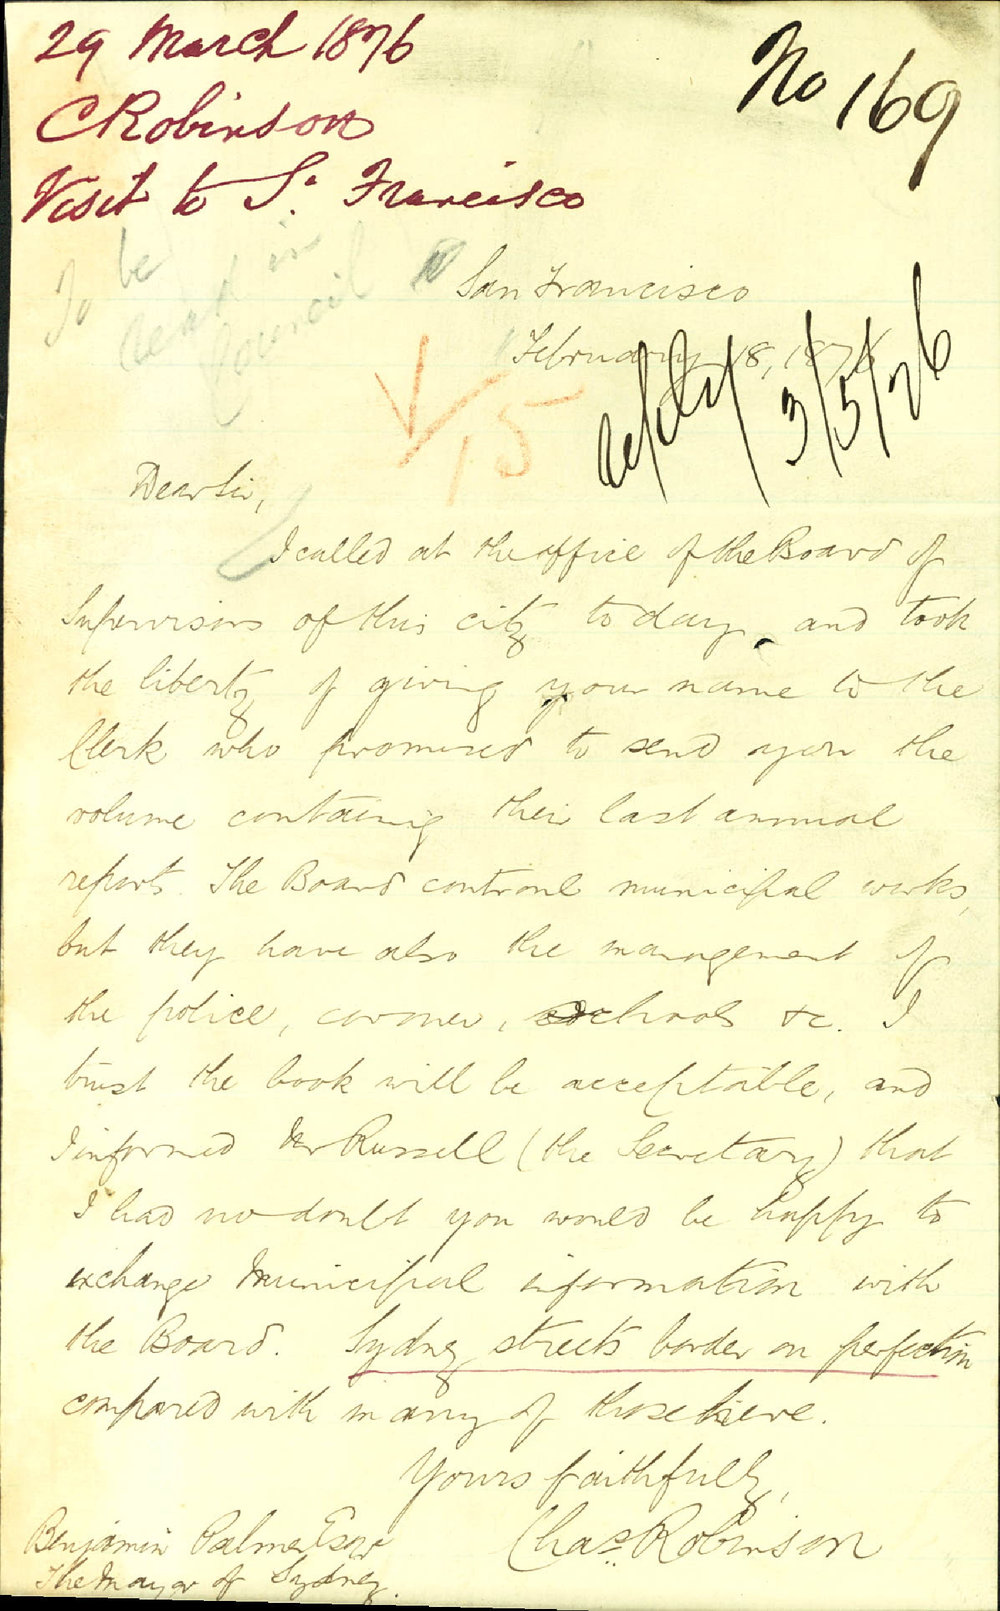 29 March 1876
C Robinson
Visit to S. Francisco
No 169
To be
read in
Council
San Francisco
February 18, 1876
replied 3/5/76
15
Dear Sir,
I called at the office of the Board of
Supervisors of this city today, and took
the liberty of giving your name to the
Clerk who promised to send you the
volume containing their last annual
reports. The Board control municipal works,
but they have also the management of
the police, coroner, schools &c. I
trust the book will be acceptable, and
I informed Mr Russell (the Secretary) that
I had no doubt you would be happy to
exchange Municipal information with
the Board. Sydney streets border on perfection
compared with many of those here.
Yours faithfully,
Chas. Robinson
Benjamin Palmer Esqr
The Mayor of Sydney.